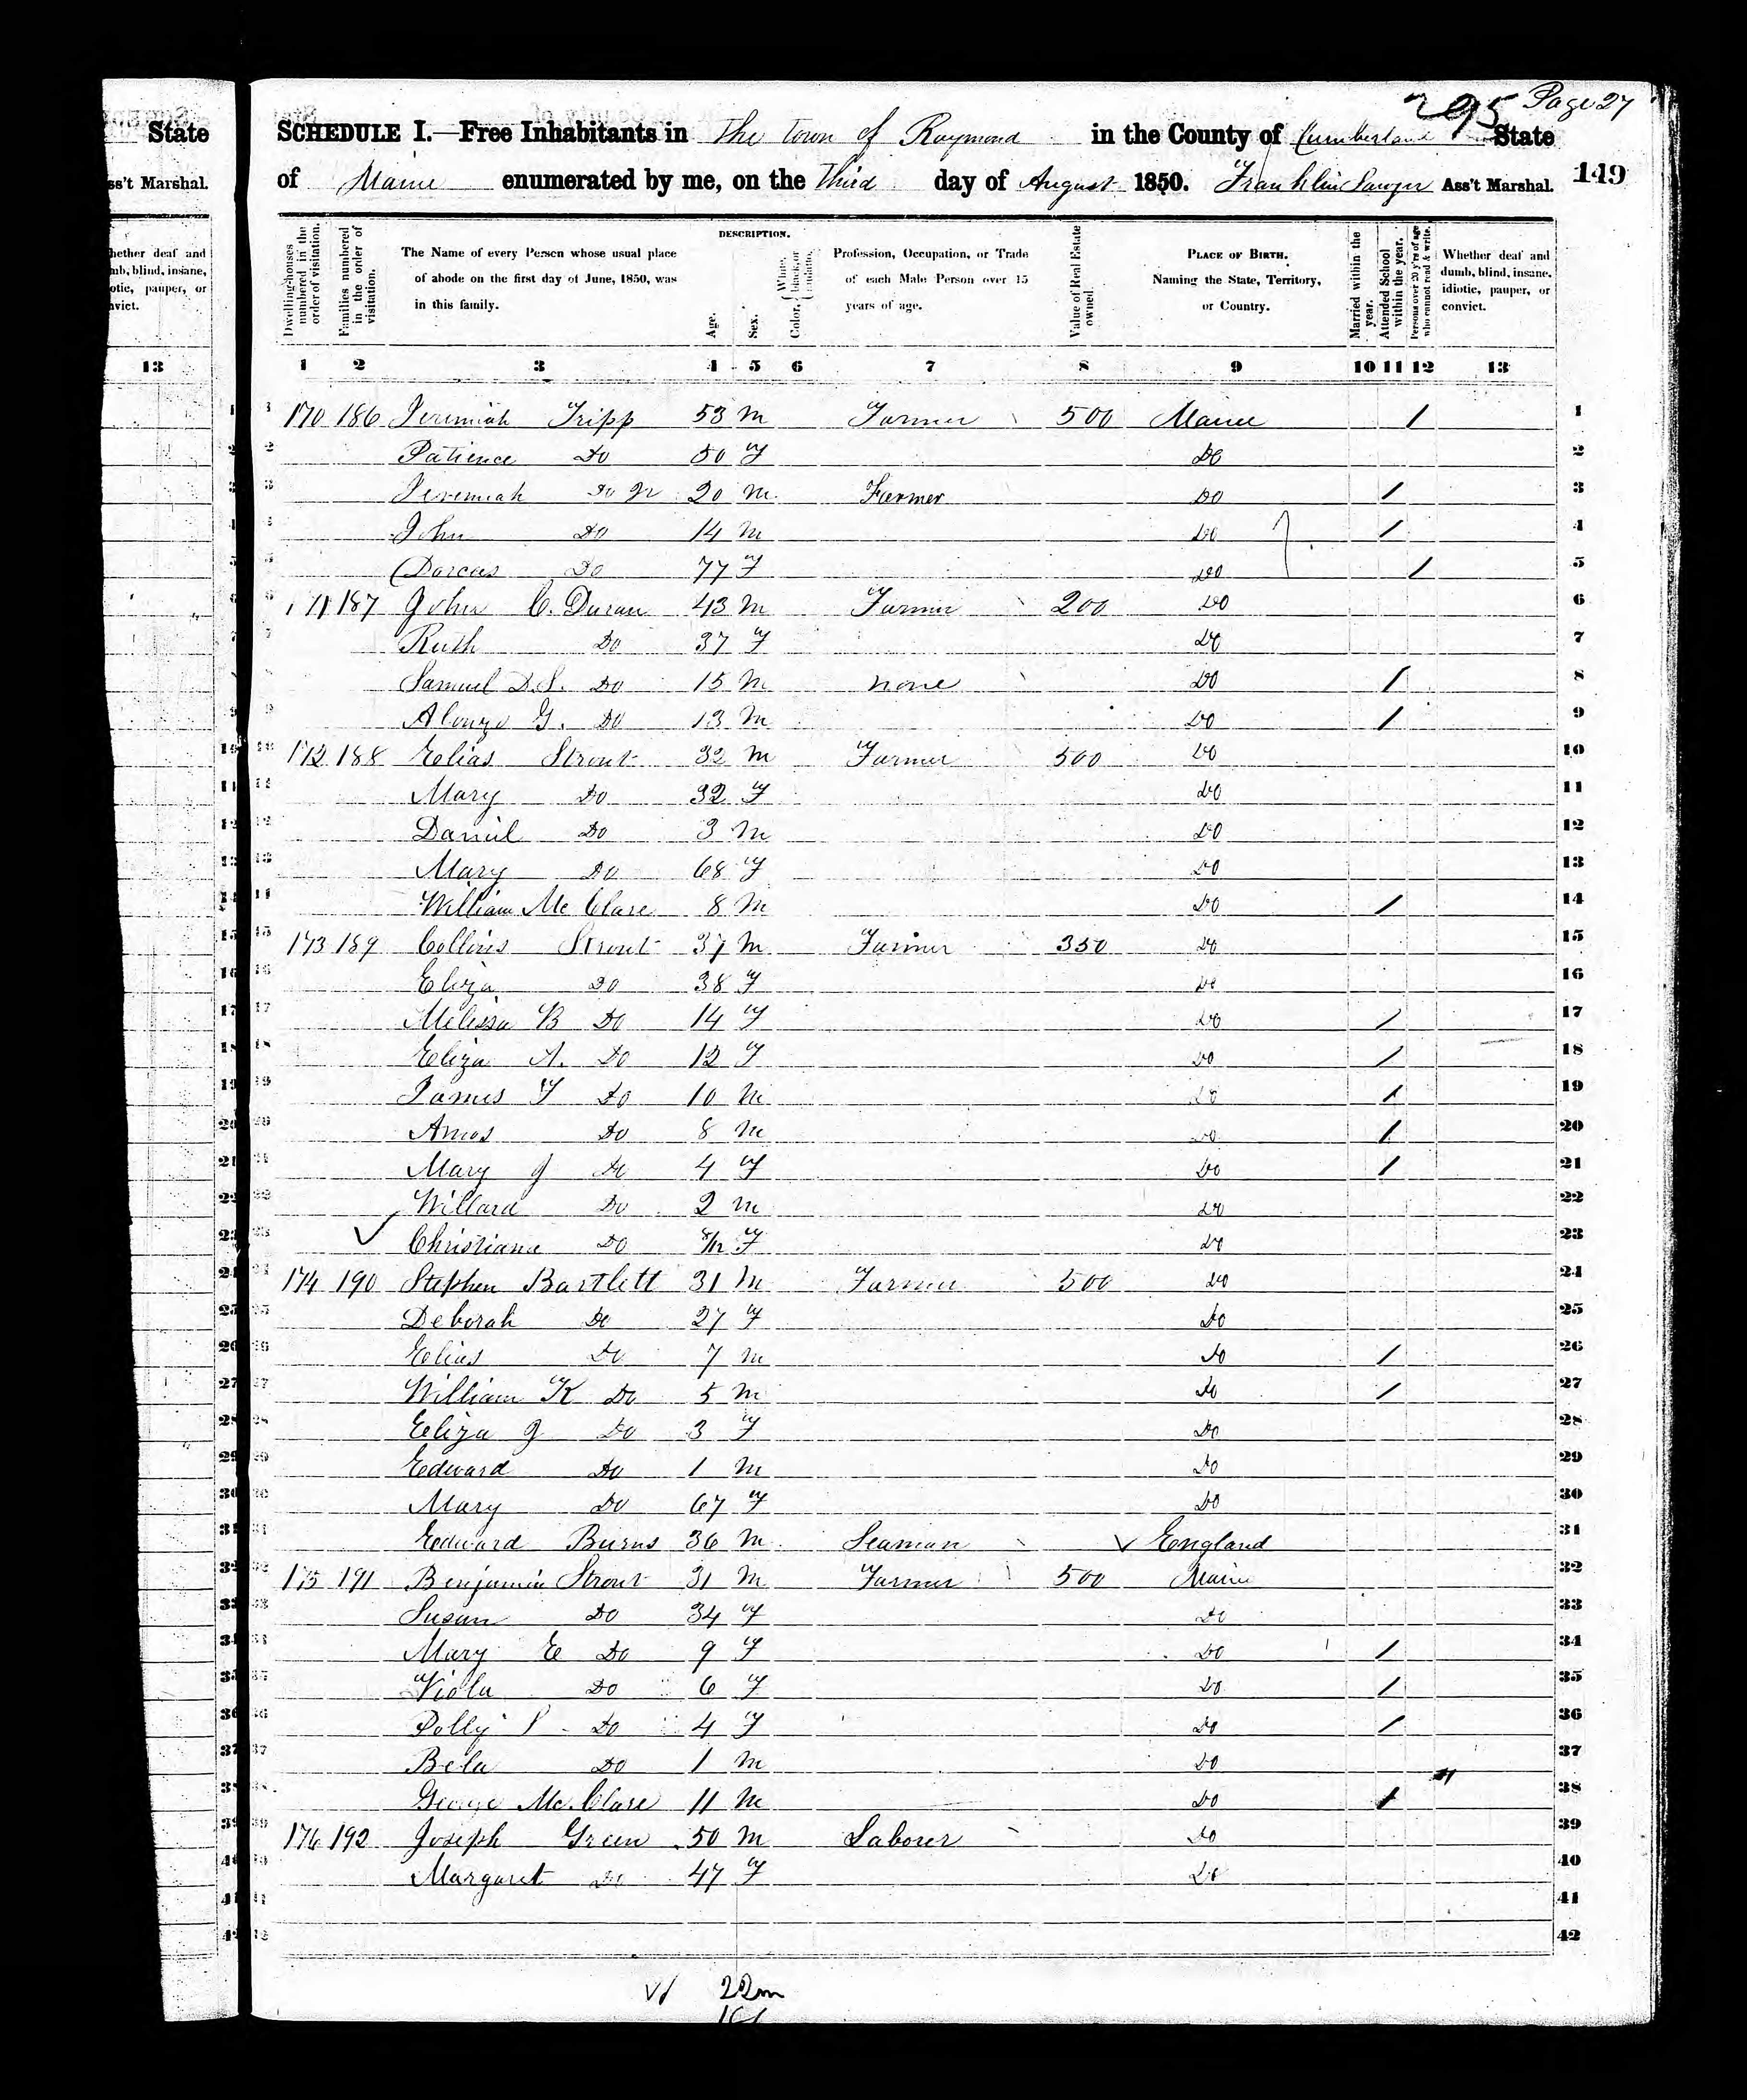 295 Page 27
State
SCHEDULE I.—Free Inhabitants in The Town of Raymond in the County of Cumberland State
ss't Marshal.
of Maine enumerated by me, on the Third day of August 1850. Franklin Sawyer Ass't Marshal. 149
hether deaf and
mb, blind, insane,
otic, pauper, or
nvict.
Dwelling-houses numbered in the order of visitation.
Families numbered in the order of visitation.
The Name of every Person whose usual place of abode on the first day of June, 1850, was in this family.
DESCRIPTION.
Age.
Sex.
Color, { White, black, or mulatto.
Profession, Occupation, or Trade of each Male Person over 15 years of age.
Value of Real Estate owned.
PLACE OF BIRTH. Naming the State, Territory, or Country.
Married within the year.
Attended School within the year.
Persons over 20 y'rs of age who cannot read & write.
Whether deaf and dumb, blind, insane, idiotic, pauper, or convict.
13 1 2 3 4 5 6 7 8 9 10 11 12 13
1 170 186 Jeremiah Tripp 53 M Farmer 500 Maine / 1
2 Patience Do 50 F Do 2
3 Jeremiah Do Jr 20 M Farmer Do / 3
4 John Do 14 M Do / 4
5 Dorcas Do 77 F Do / 5
6 171 187 John C. Duran 43 M Farmer 200 Do 6
7 Ruth Do 37 F Do 7
8 Samuel D.S. Do 15 M none Do / 8
9 Alonzo G. Do 13 M Do / 9
10 172 188 Elias Strout 32 M Farmer 500 Do 10
11 Mary Do 32 F Do 11
12 Daniel Do 3 M Do 12
13 Mary Do 68 F Do 13
14 William McClare 8 M Do / 14
15 173 189 Collins Strout 37 M Farmer 350 Do 15
16 Eliza Do 38 F Do 16
17 Melissa B Do 14 F Do / 17
18 Eliza A. Do 12 F Do / 18
19 James F Do 10 M Do / 19
20 Amos Do 8 M Do / 20
21 Mary J Do 4 F Do / 21
22 Willard Do 2 M Do 22
23 Christiana Do 8/12 F Do 23
24 174 190 Stephen Bartlett 31 M Farmer 500 Do 24
25 Deborah Do 27 F Do 25
26 Elias Do 7 M Do / 26
27 William K Do 5 M Do / 27
28 Eliza J Do 3 F Do 28
29 Edward Do 1 M Do 29
30 Mary Do 67 F Do 30
31 Edward Burns 36 M Seaman England 31
32 175 191 Benjamin Strout 31 M Farmer 500 Maine 32
33 Susan Do 34 F Do 33
34 Mary E Do 9 F Do / 34
35 Viola Do 6 F Do / 35
36 Polly S Do 4 F Do / 36
37 Bela Do 1 M Do 37
38 George McClare 11 M Do / 38
39 176 192 Joseph Green 50 M Laborer Do 39
40 Margaret Do 47 F Do 40
41 41
42 42
22m